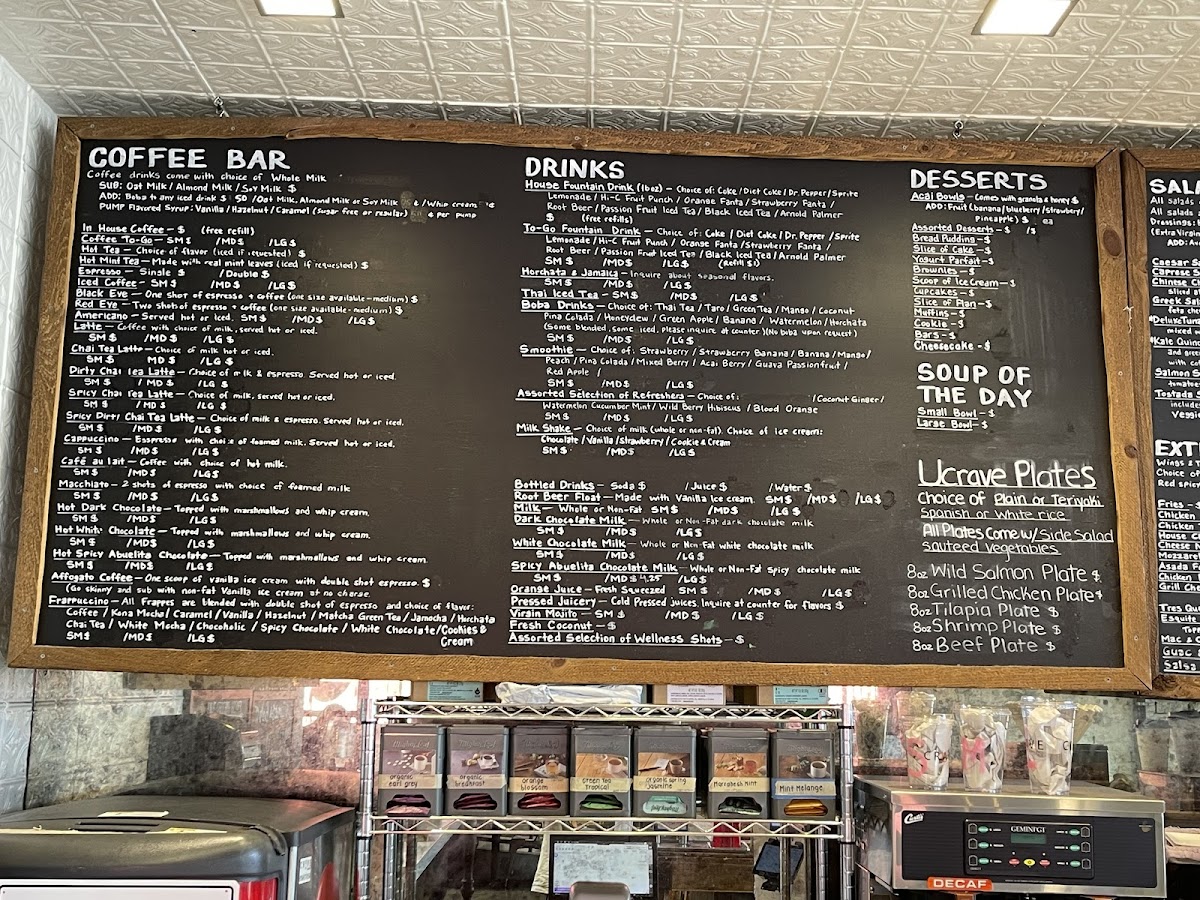 COFFEE BAR
Coffee drinks come with choice of Whole Milk
SUB: Oat Milk / Almond Milk / Soy Milk $
ADD: Boba to any iced drink $ 50 / Oat Milk, Almond Milk or Soy Milk / Whip cream
PUMP Flavored Syrup: Vanilla / Hazelnut / Caramel (sugar free or regular) per pump
In House Coffee - $ (free refill)
Coffee To-Go - SM $ /MD $ /LG $
Hot Tea - Choice of flavor (iced if requested) $
Hot Mint Tea - Made with real mint leaves (iced if requested) $
Espresso - Single $ /Double $
Iced Coffee - SM $ /MD $ /LG $
Black Eye - One shot of espresso + coffee (one size available - medium) $
Red Eye - Two shots of espresso + coffee (one size available - medium) $
Americano - Served hot or iced. SM $ /MD $ /LG $
Latte - Coffee with choice of milk, served hot or iced.
SM $ /MD $ /LG $
Chai Tea Latte - Choice of milk hot or iced.
SM $ MD $ /LG $
Dirty Chai Tea Latte - Choice of milk & espresso. Served hot or iced.
SM $ /MD $ /LG $
Spicy Chai Tea Latte - Choice of milk, served hot or iced.
SM $ /MD $ /LG $
Spicy Dirty Chai Tea Latte - Choice of milk & espresso. Served hot or iced.
SM $ /MD $ /LG $
Cappuccino - Esspresso with choice of foamed milk. Served hot or iced.
SM $ /MD $ /LG $
Café au lait - Coffee with choice of hot milk.
SM $ /MD $ /LG $
Macchiato - 2 shots of espresso with choice of foamed milk
SM $ /MD $ /LG $
Hot Dark Chocolate - Topped with marshmallows and whip cream.
SM $ /MD $ /LG $
Hot White Chocolate - Topped with marshmallows and whip cream.
SM $ /MD $ /LG $
Hot Spicy Abuelita Chocolate - Topped with marshmallows and whip cream
SM $ /MD $ /LG $
Affogato Coffee - One scoop of vanilla ice cream with double shot espresso. $
(Go skinny and sub with non-fat Vanilla ice cream at no charge.
Frappuccino - All Frappes are blended with double shot of espresso and choice of flavor:
Coffee / Kona Mocha / Caramel / Vanilla / Hazelnut / Matcha Green Tea / Jamocha / Horchata
Chai Tea / White Mocha / Chocoholic / Spicy Chocolate / White Chocolate / Cookies &
Cream
SM $ /MD $ /LG $
DRINKS
House Fountain Drink (16oz) - Choice of: Coke / Diet Coke / Dr. Pepper / Sprite
Lemonade / Hi-C Fruit Punch / Orange Fanta / Strawberry Fanta /
Root Beer / Passion Fruit Iced Tea / Black Iced Tea / Arnold Palmer
$ (free refills)
To-Go Fountain Drink - Choice of: Coke / Diet Coke / Dr. Pepper / Sprite
Lemonade / Hi-C Fruit Punch / Orange Fanta / Strawberry Fanta /
Root Beer / Passion Fruit Iced Tea / Black Iced Tea / Arnold Palmer
SM $ /MD $ /LG $ (Refill $1)
Horchata & Jamaica - Inquire about seasonal flavors.
SM $ /MD $ /LG $
Thai Iced Tea - SM $ /MD $ /LG $
Boba Drinks - Choice of: Thai Tea / Taro / Green Tea / Mango / Coconut
Pina Colada / Honeydew / Green Apple / Banana / Watermelon / Horchata
(Some blended, some iced, please inquire at counter) (No boba upon request)
SM $ /MD $ /LG $
Smoothie - Choice of: Strawberry / Strawberry Banana / Banana / Mango /
Peach / Pina Colada / Mixed Berry / Acai Berry / Guava Passionfruit /
Red Apple /
SM $ /MD $ /LG $
Assorted Selection of Refreshers - Choice of: / Coconut Ginger /
Watermelon Cucumber Mint / Wild Berry Hibiscus / Blood Orange
SM $ /MD $ /LG $
Milk Shake - Choice of milk (whole or non-fat). Choice of ice cream:
Chocolate / Vanilla / Strawberry / Cookie & Cream
SM $ /MD $ /LG $
Bottled Drinks - Soda $ /Juice $ /Water $
Root Beer Float - Made with Vanilla Ice cream SM $ /MD $ /LG $
Milk - Whole or Non-Fat SM $ /MD $ /LG $
Dark Chocolate Milk - Whole or Non-Fat dark chocolate milk
SM $ /MD $ /LG $
White Chocolate Milk - Whole or Non-Fat white chocolate milk
SM $ /MD $ /LG $
Spicy Abuelita Chocolate Milk - Whole or Non-Fat Spicy chocolate milk
SM $ /MD $ 4.25 /LG $
Orange Juice - Fresh Squeezed SM $ /MD $ /LG $
Pressed Juicery - Cold Pressed Juices. Inquire at counter for flavors $
Virgin Mojito - SM $ /MD $ /LG $
Fresh Coconut - $
Assorted Selection of Wellness Shots - $
DESSERTS
Acai Bowls - Comes with granola & honey $
ADD: Fruit (banana/blueberry/strawberry/
Pineapple) $ ea
Assorted Desserts - $ /$
Bread Pudding - $
Slice of Cake - $
Yogurt Parfait - $
Brownies - $
Scoop of Ice Cream - $
Cupcakes - $
Slice of Flan - $
Muffins - $
Cookie - $
Bars - $
Cheesecake - $
SOUP OF
THE DAY
Small Bowl - $
Large Bowl - $
Ucrave Plates
Choice of Plain or Teriyaki
Spanish or White rice
All Plates Come w/ Side Salad
sauteed vegetables
8oz Wild Salmon Plate $
8oz Grilled Chicken Plate $
8oz Tilapia Plate $
8oz Shrimp Plate $
8oz Beef Plate $
SALA
All salads
All salads
Dressings:
(Extra Virgin
ADD: A
Caesar Sa
Caprese S
Chinese Ch
sliced al
Greek Sala
feta ch
*DeluxeTuna
mixed
*Kale Quino
and gre
with co
Salmon S
tomatoe
Tostada S
include
Veggi
EXT
Wings & T
Choice of
Red spicy
Fries - $
Chicken
Chicken
House C
Cheese
Mozzarel
Asada F
Chicken
Grill Ch
Tres Qu
Esquite
Mac & C
Guac &
Salsa
organic
earl grey
organic
breakfast
orange
blossom
Green Tea
Tropical
organic spring
jasmine
Marrakesh Mint
Mint Melange
Curtis
GEMINI GT
DECAF